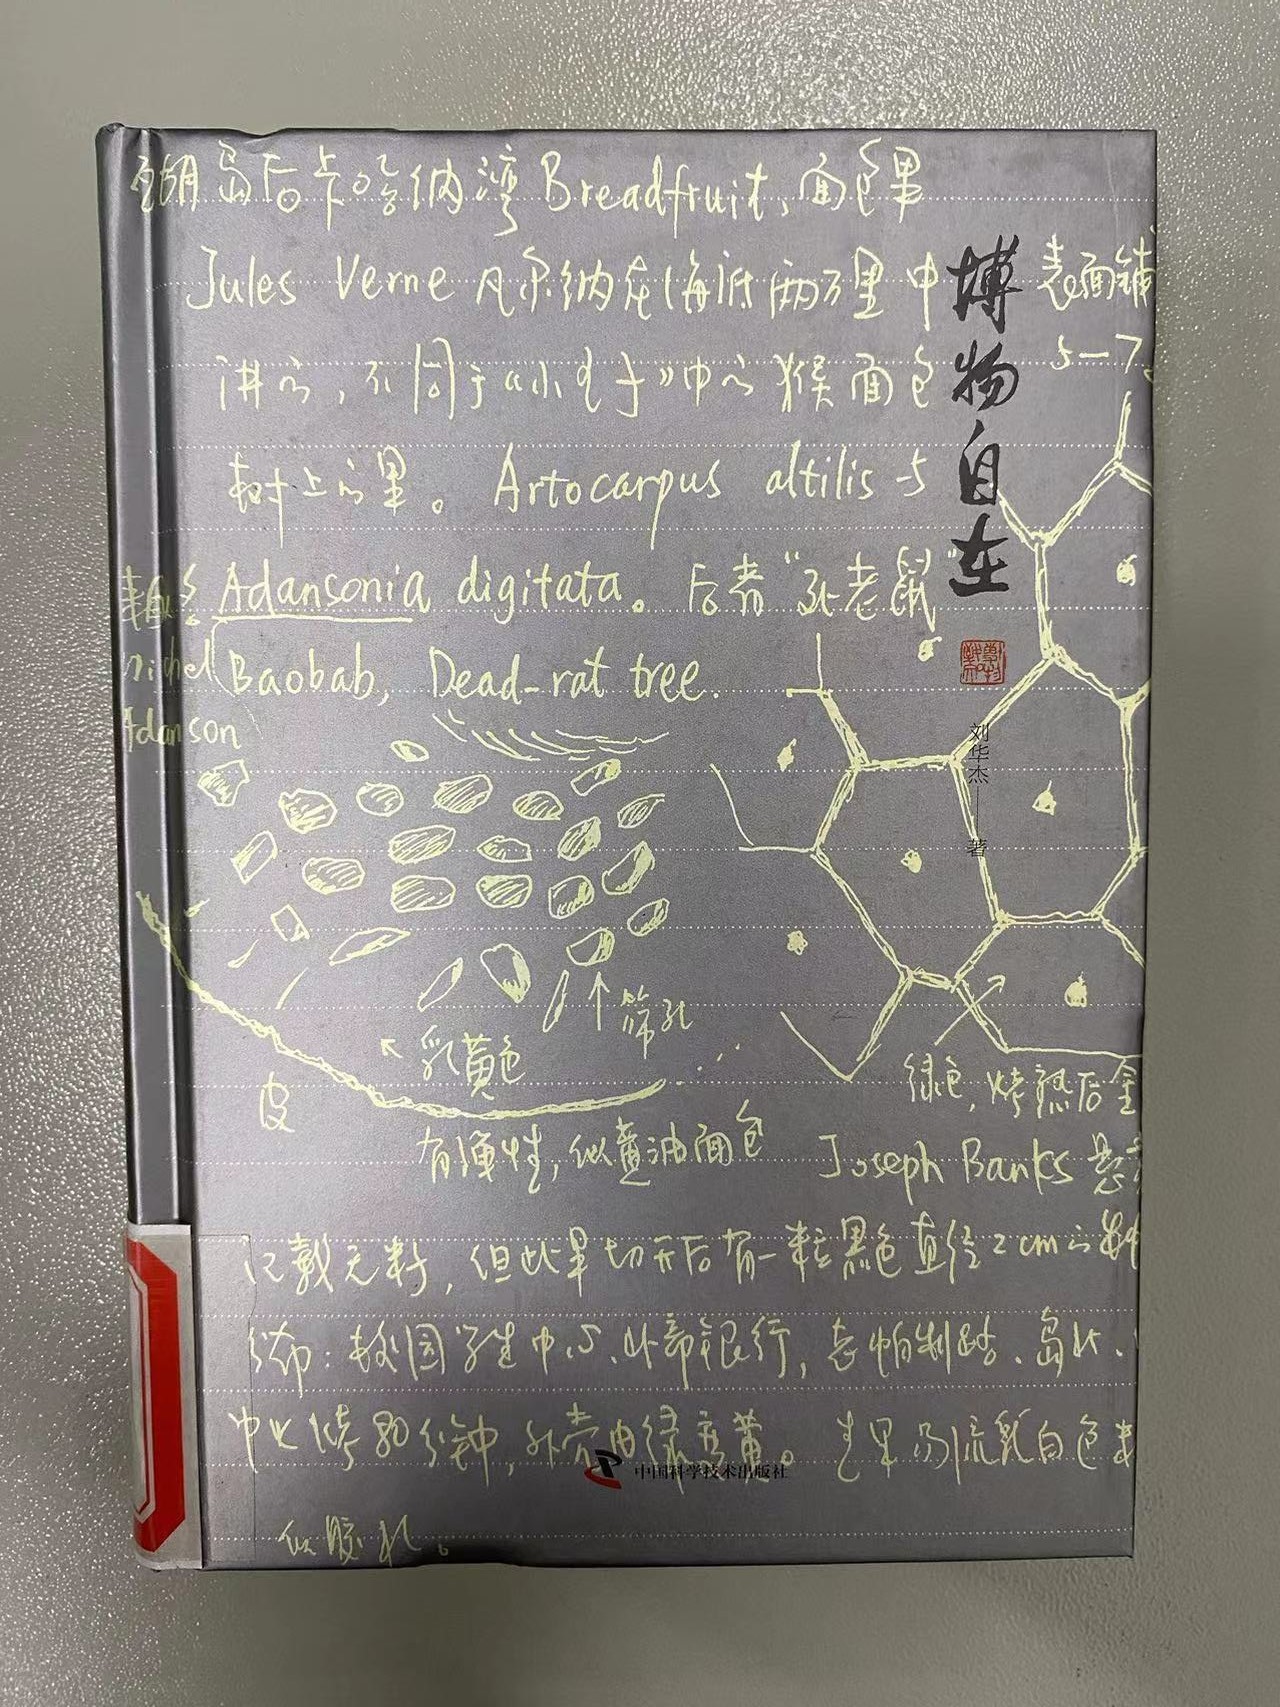 岛后卡哈纳湾 Breadfruit, 面包果
Jules Verne 凡尔纳在海底两万里中
讲的, 不同于《小王子》中的猴面包
树上的果。 Artocarpus altilis 与
Adansonia digitata。后者"死老鼠"
Michel (Baobab, Dead-rat tree.
Adanson
博物自在
表面铺
5-7
刘华杰 著
筛孔
乳黄色
皮
有弹性, 似黄油面包
绿色, 烤熟后金
Joseph Banks
记载无籽, 但此果切开后有一粒黑色直径2cm的
分布: 校园学生中心, 岛北、
中火烤80分钟, 外壳由绿变黄。生果 流乳白色
似胶乳。
中国科学技术出版社